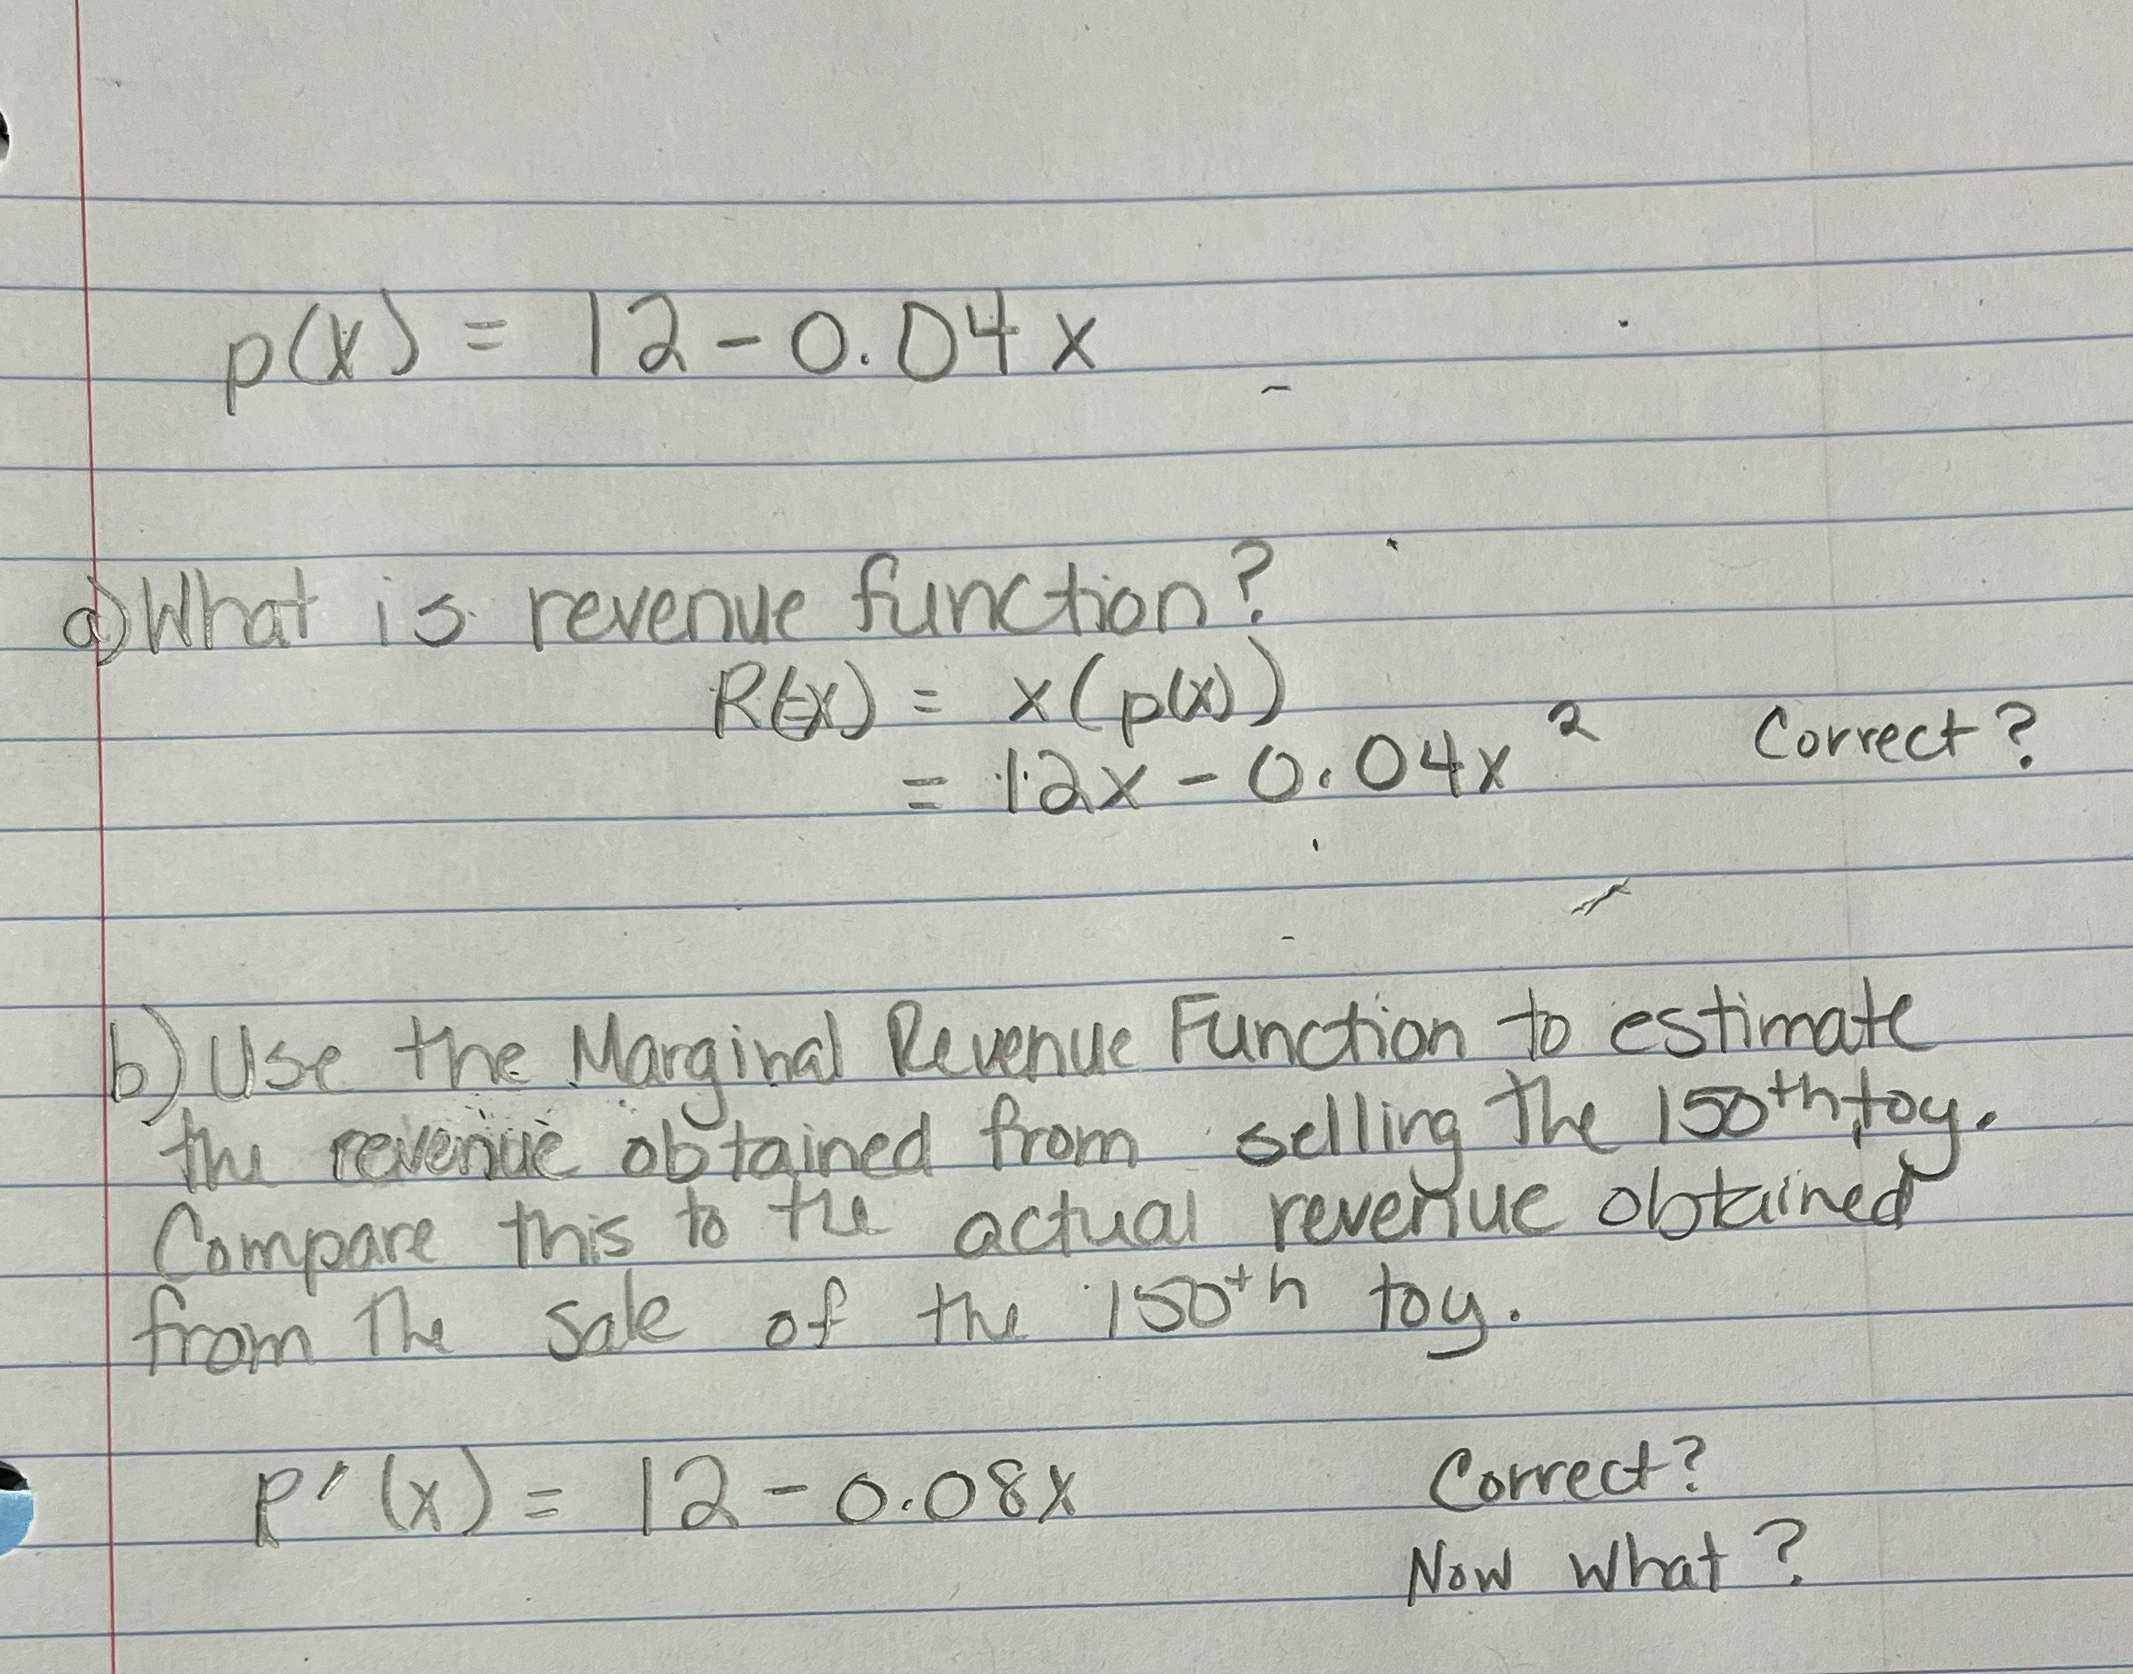 p(x) = 12 - 0.04x
a) What is revenue function?
R(x) = x(p(x))
= 12x - 0.04x² Correct?
b) Use the Marginal Revenue Function to estimate
the revenue obtained from selling the 150th toy.
Compare this to the actual revenue obtained
from the sale of the 150th toy.
P'(x) = 12 - 0.08x Correct?
Now what?